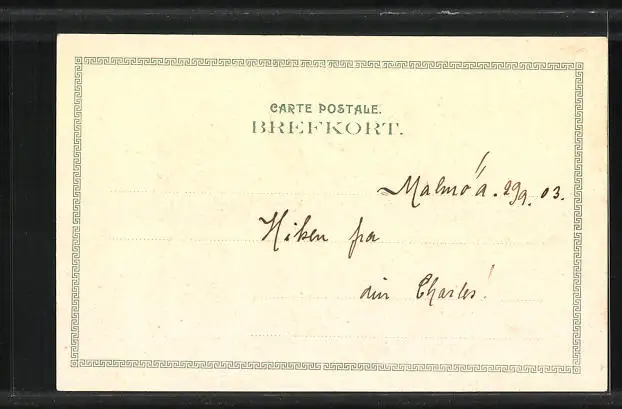 CARTE POSTALE.
BREFKORT.
Malmö d. 29/9. 03.
Hilsen fra
din Charles!